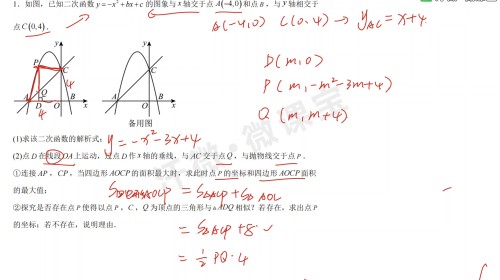 1. 如图，已知二次函数 y=-x²+bx+c 的图象与 x 轴交于点 A(-4,0) 和点 B，与 y 轴相交于
点 C(0,4).
A(-4,0) C(0,4) → y_AC = x+4
D(m,0)
P(m, -m²-3m+4)
Q(m, m+4)
y P C Q A D O B x
4
4
y C A O B x
备用图
(1)求该二次函数的解析式;
y=-x²-3x+4
(2)点 D 在线段 OA 上运动，过点 D 作 x 轴的垂线，与 AC 交于点 Q，与抛物线交于点 P.
①连接 AP，CP，当四边形 AOCP 的面积最大时，求此时点 P 的坐标和四边形 AOCP 面积
的最大值;
②探究是否存在点 P 使得以点 P，C，Q 为顶点的三角形与△ADQ 相似？若存在，求出点 P
的坐标；若不存在，说明理由.
AOCP = S△ACP + S△AOC
= S△ACP + 8
= 1/2 PQ·4
微课宝